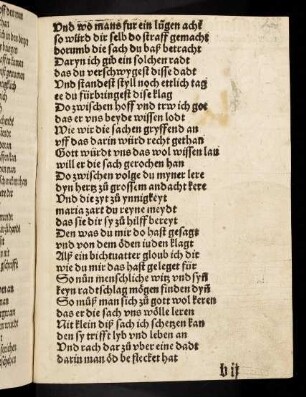 Vnd wo mans fur ein lügen acht
so würd dir selb do straff gemacht
dorumb die sach du baß betracht
Daryn ich gib ein solchen radt
das du verschwygest disse dadt
Vnd standest styll noch etlich tag
ee du fürbringest dise klag
Do zwischen hoff vnd trw ich got
das er vns beyde wissen lodt
Wie wir die sachen gryffend an
vff das darin würd recht gethan
Gott würdt vns das wol wissen lan
will er die sach gerochen han
Do zwischen volge du myner lere
dyn hertz zů grossem andacht kere
Vnd die zyt zů ynnigkeyt
maria zart du reyne meydt
das sie dir sy zů hilff bereyt
Den was du mir do hast gesagt
vnd von dem öden iuden klagt
Alß ein bichtuatter gloub ich dir
wie du mir das hast geleget für
So nün menschliche witz vnd syn
keyn radtschlag mögen finden dyn
So můß man sich zů gott wol keren
das er die sach vns wölle leren
Nit klein diß sach ich schetzen kan
den sy trifft lyb vnd leben an
Vnd rach dar zů vber eine dadt
darin man öd be flecket hat
b ij